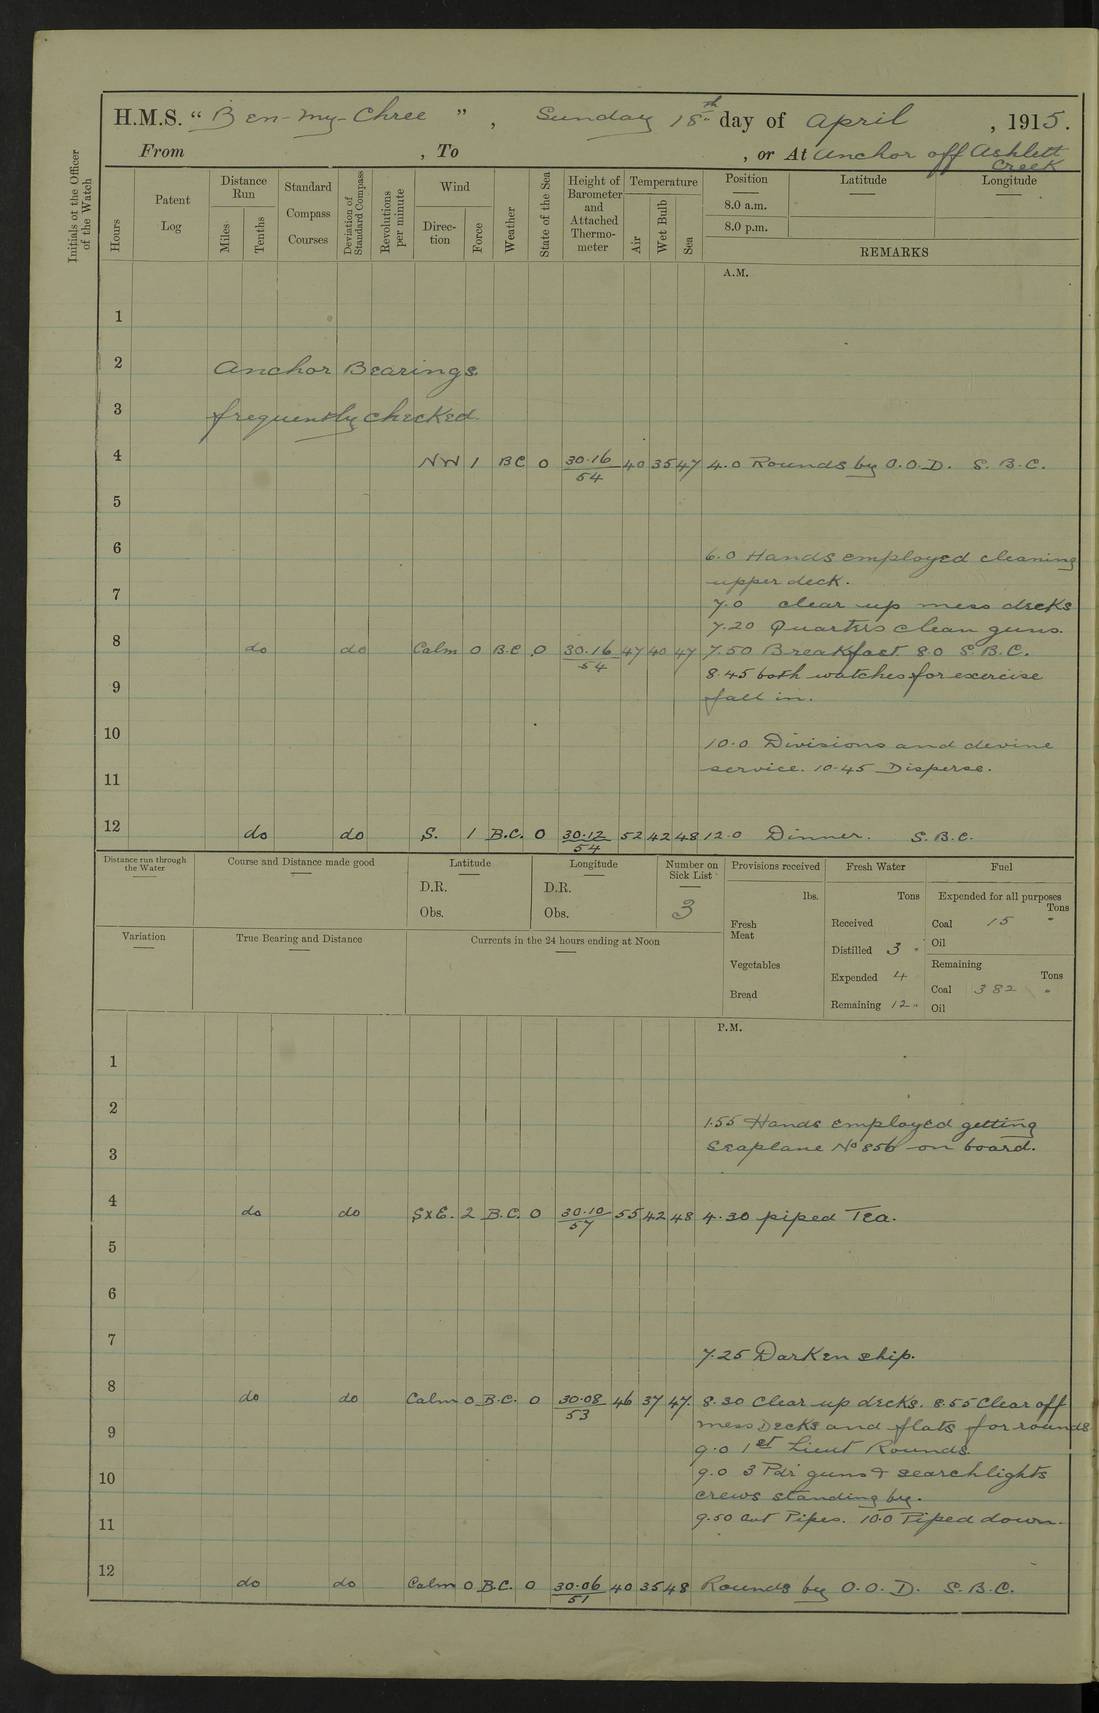 H.M.S. “ Ben-my-Chree ” , Sunday 18th day of April , 1915.
From , To , or At Anchor off Ashlett Creek
Initials of the Officer of the Watch
Hours
Patent Log
Distance Run
Miles
Tenths
Standard Compass Courses
Deviation of Standard Compass
Revolutions per minute
Wind
Direction
Force
Weather
State of the Sea
Height of Barometer and Attached Thermometer
Temperature
Air
Wet Bulb
Sea
Position
8.0 a.m.
8.0 p.m.
Latitude
Longitude
REMARKS
A.M.
1
2 Anchor Bearings
3 frequently checked
4 NW 1 BC 0 30.16/54 40 35 47 4.0 Rounds by O.O.D. S.B.C.
5
6 6.0 Hands employed cleaning
upper deck.
7 7.0 clear up mess decks
7.20 Quarters clean guns.
8 do do Calm 0 B.C. 0 30.16/54 47 40 47 7.50 Breakfast. 8.0 S.B.C.
8.45 both watches for exercise
9 fall in.
10 10.0 Divisions and devine
service. 10.45 Disperse.
11
12 do do S. 1 B.C. 0 30.12/54 52 42 48 12.0 Dinner. S.B.C.
Distance run through the Water
Course and Distance made good
Latitude
D.R.
Obs.
Longitude
D.R.
Obs.
Number on Sick List
3
Provisions received
lbs.
Fresh Meat
Vegetables
Bread
Fresh Water
Tons
Received
Distilled 3 "
Expended 4
Remaining 12 "
Fuel
Expended for all purposes
Tons
Coal 15 "
Oil
Remaining
Tons
Coal 382 "
Oil
Variation
True Bearing and Distance
Currents in the 24 hours ending at Noon
P.M.
1
2 1.55 Hands employed getting
3 Seaplane No 856 on board.
4 do do SxE. 2 B.C. 0 30.10/57 55 42 48 4.30 piped Tea.
5
6
7 7.25 Darken ship.
8 do do Calm 0 B.C. 0 30.08/53 46 37 47. 8.30 Clear up decks. 8.55 Clear off
mess Decks and flats for rounds
9 9.0 1st Lieut Rounds.
10 9.0 3 Pdr guns & searchlights
crews standing by.
11 9.50 Out Pipes. 10.0 Piped down.
12 do do Calm 0 B.C. 0 30.06/51 40 35 48 Rounds by O.O.D. S.B.C.